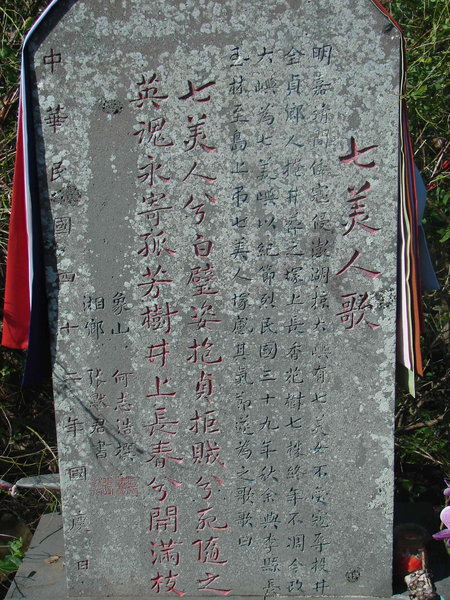 七美人歌
明嘉靖間倭寇侵澎湖掠大嶼有七美女不受寇辱投井
全貞鄉人掩井葬之塚上長香花樹七株終年不凋今改
大嶼為七美嶼以紀節烈民國三十九年秋余與李縣長
玉林至島上弔七美人塚感其氣節為之歌歌曰
七美人兮白璧姿抱貞拒賊兮死隨之
英魂永寄孤芳樹井上長春兮開滿枝
象山 何志浩撰
湘鄉 張默君書
中華民國四十二年國慶日